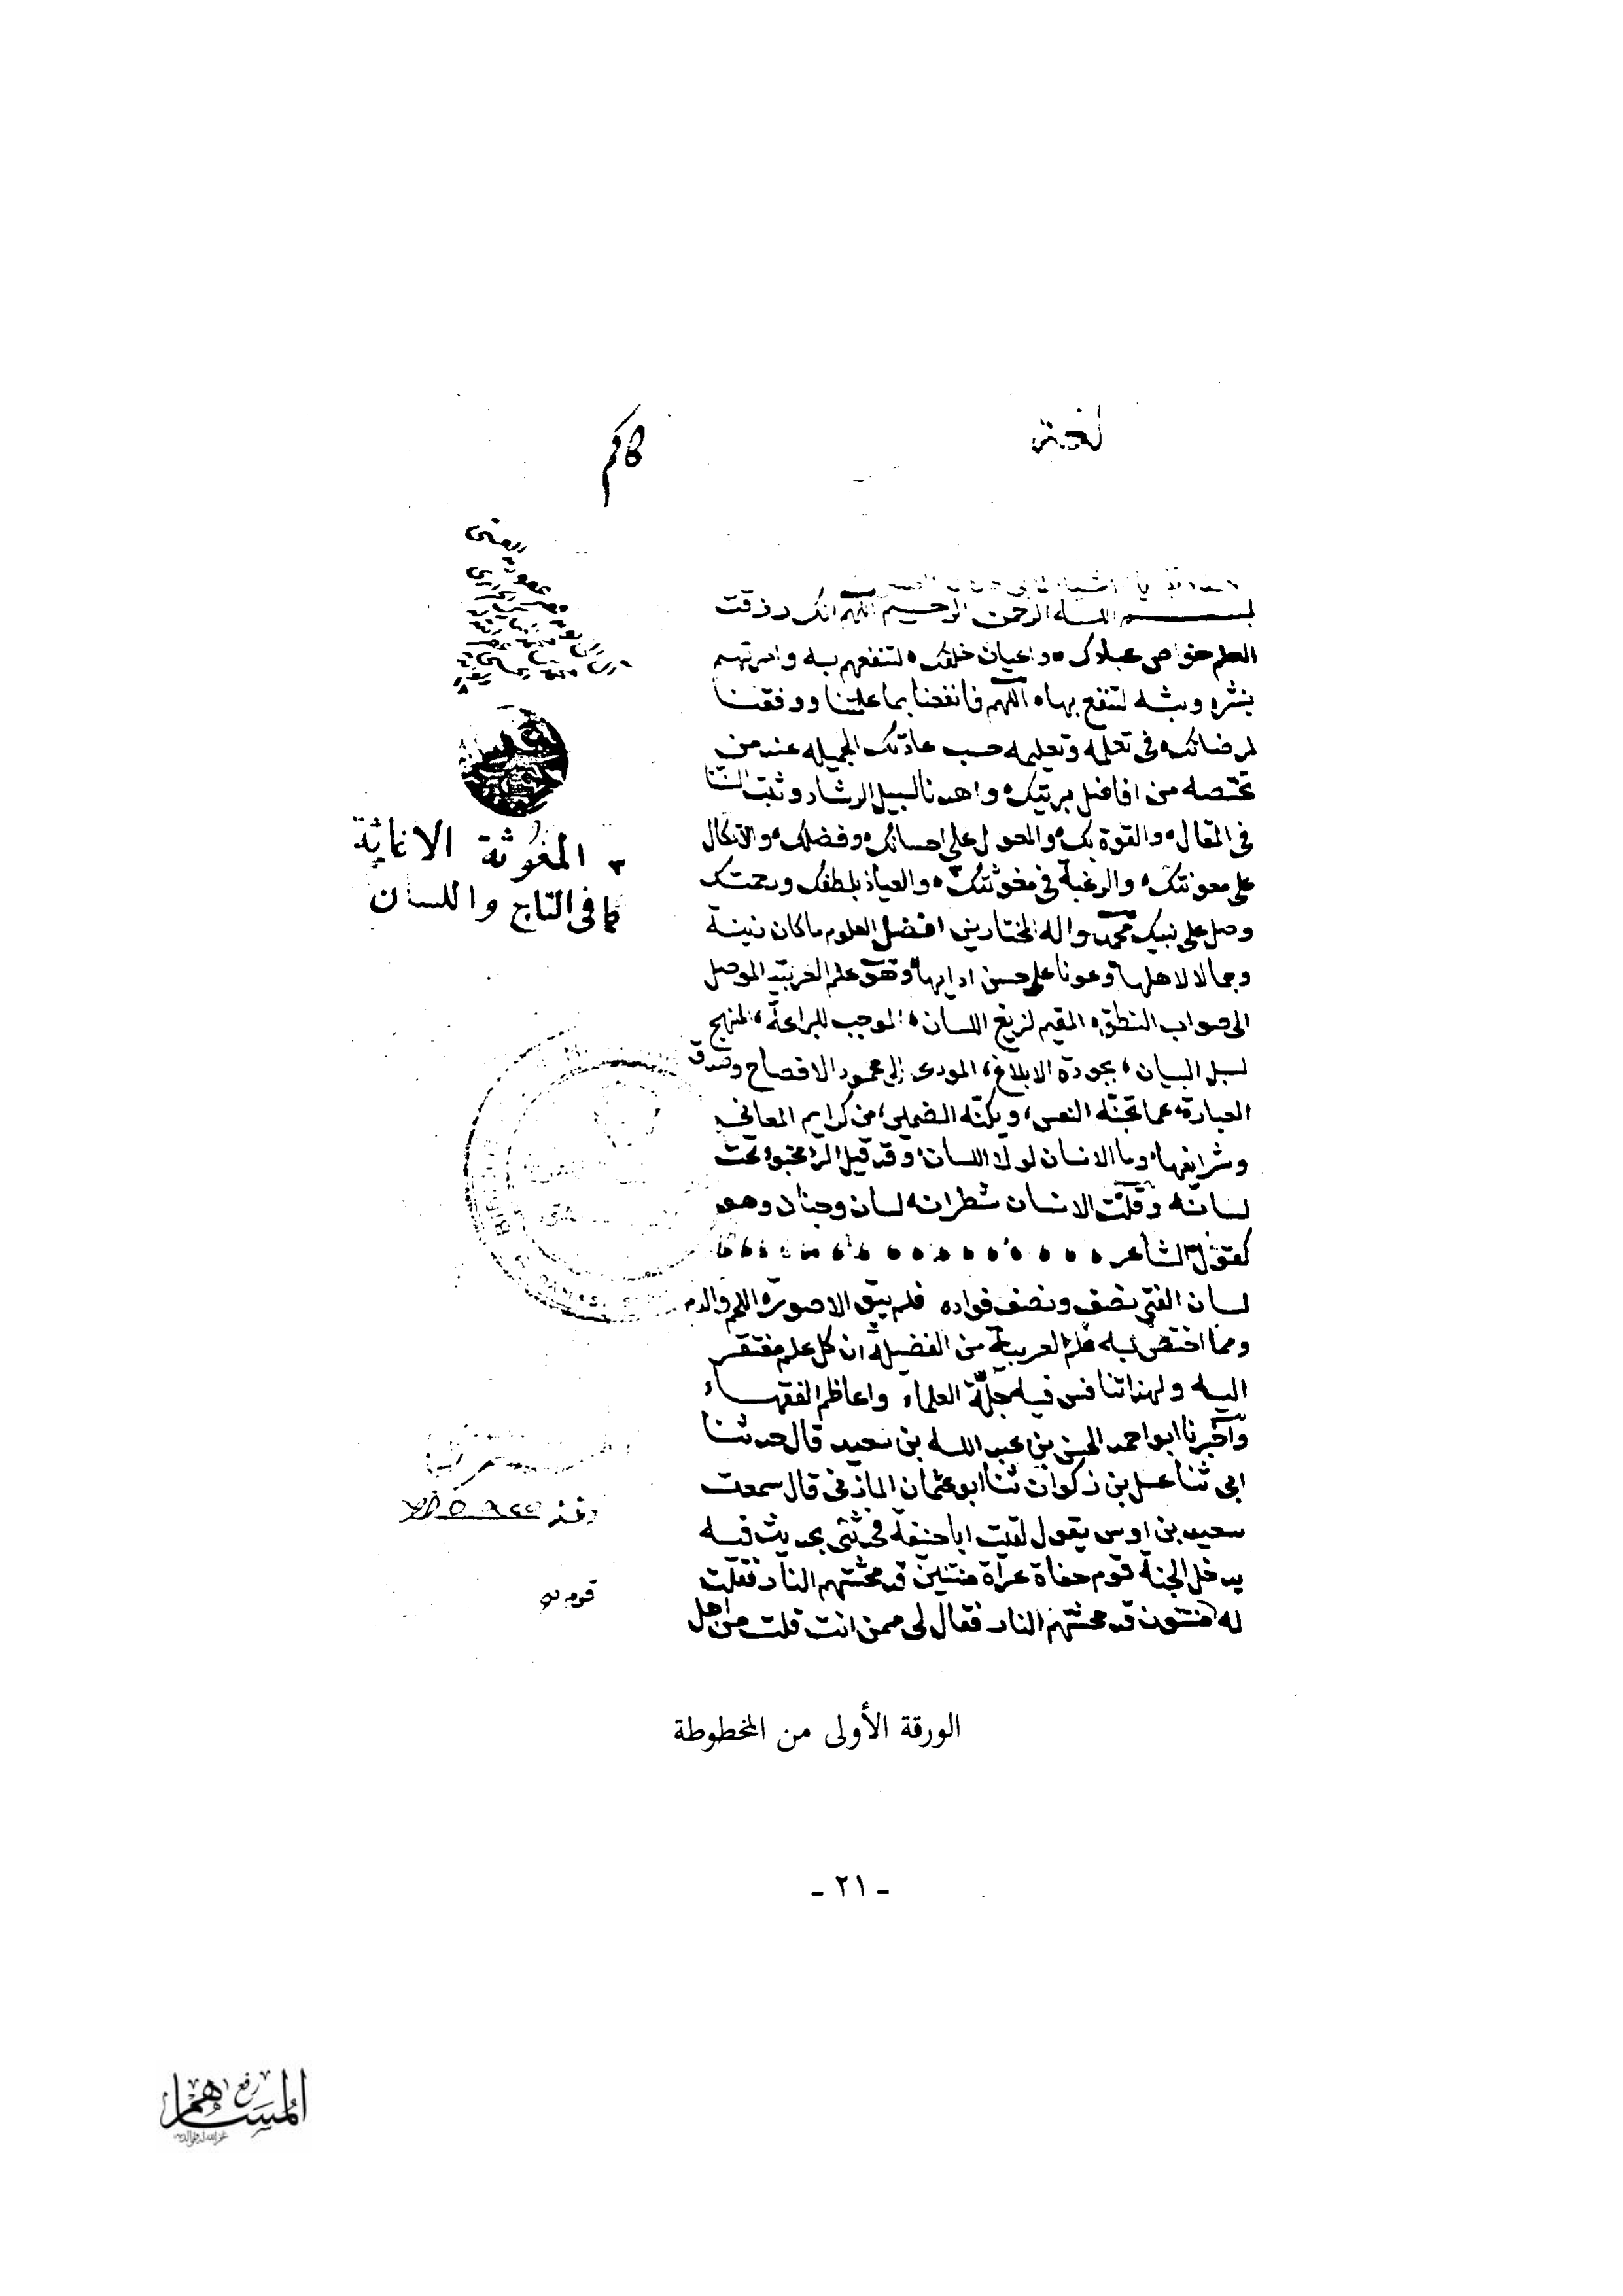 لغة
بسم الله الرحمن الرحيم اللهم انك رزقت
العلم خواص عبادك واعيان خلقك لتنفعهم به وامرتهم
بنشره وبثه لتنفع بهم اللهم فانفعنا بما علمتنا ووفقنا
لمرضاتك فى تعلمه وتعليمه حسب عادتك الجميله عند من
تختصه من افاضل بريتك واهدنا لسبيل الرشاد وثبت السنتنا
فى المقال والقوة بك والمعول على احسانك وفضلك والاتكال
على معونتك والرغبة فى مغوثتك والعياذ بلطفك ورحمتك
وصل على نبيك محمد واله المختارين افضل العلوم ما كان زينة
وجمالا لاهلها وعونا على حسن ادايها وهو علم العربية الموصل
الى صواب النطق المقيم لزيغ اللسان الموجب للبراعة المنهج
لسبل البيان بجودة الابلاغ المودى الى محمود الافصاح وصدق
العبارة عما تجنه النفس ويكنه الضمير من كرايم المعانى
وشرايفها وما الانسان لولا اللسان وقد قيل المرء مخبوء تحت
لسانه وقلت الانسان شطران لسان وجنان وهو
كقول الشاعر
لسان الفتى نصف ونصف فواده فلم يبق الا صورة اللحم والدم
ومما اختص به علم العربية من الفضيلة ان كل علم مفتقر
اليه ولهذا تنافس فيه جلة العلماء واعاظم الفقهاء
واخبرنا ابو احمد الحسن بن عبد الله بن سعيد قال حدثنا
ابى ثنا عسل بن ذكوان ثنا ابو عثمان المازنى قال سمعت
سعيد بن اوس يقول لقيت ابا حنيفة فحدثنى بحديث فيه
يدخل الجنة قوم حفاة عراة منتنين قد محشتهم النار فقلت
له منتنون قد محشتهم النار فقال لى ممن انت قلت من اهل
المغوثة الاغاثة
كما فى التاج واللسان
الورقة الأولى من المخطوطة
- ٢١ -
رفع
المساهم
غفر الله له ولوالديه